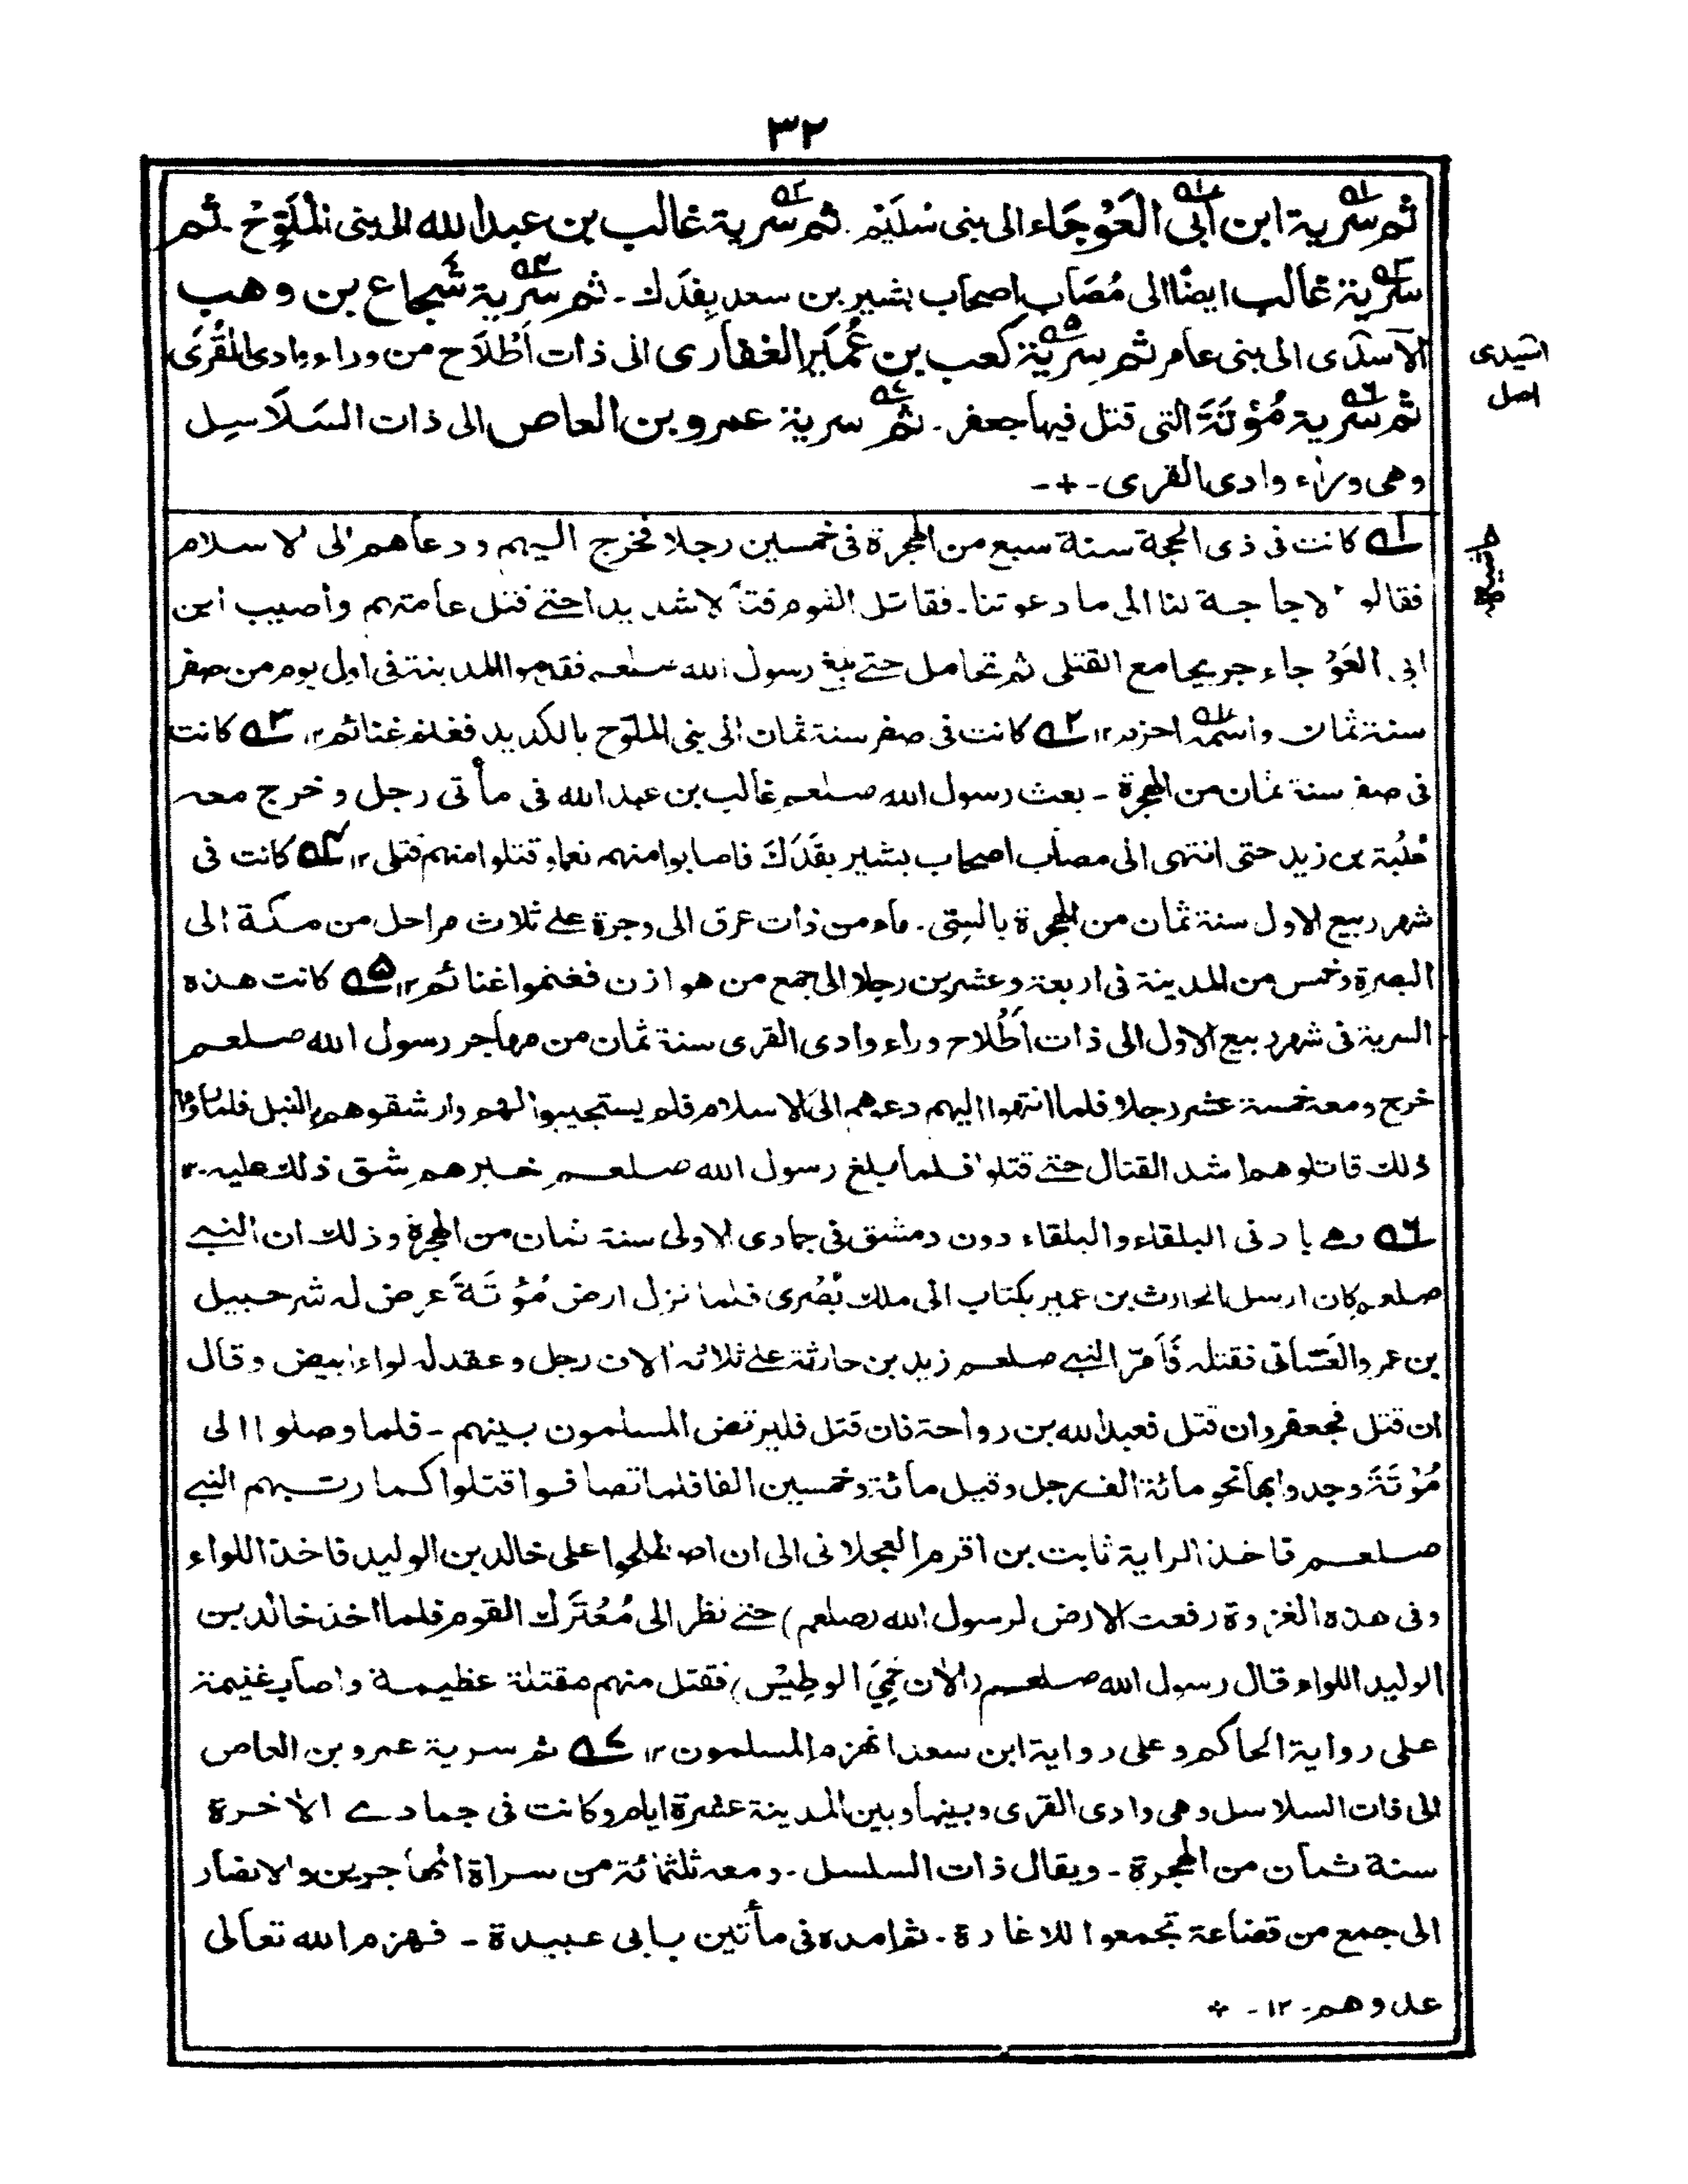 ٣٢
ثم سرية ابن ابى العَوْجَاء الى بنى سُلَيْم. ثم سرية غالب بن عبد الله الى بنى المُلَوِّحْ. ثم
سرية غالب ايضًا الى مُصَاب اصحاب بشير بن سعد بِفَدَك ـ ثم سرية شُجاع بن وهب
الآسدى الى بنى عامر ثم سرية كعب بن عُمَيْر الغفارى الى ذات اَطْلَاح من وراء وادى القُرَى
ثم سرية مُؤتَةَ التى قتل فيها جعفر ـ ثم سرية عمرو بن العاص الى ذات السَلَاسِل
وهى وراء وادى القرى ـ + ـ
اسيدى
اصل
حاشيه
ا؎ كانت فى ذى الحجة سنة سبع من الهجرة فى خمسين رجلا فخرج اليهم ودعاهم الى الاسلام
فقالوا لا حاجة لنا الى ما دعوتنا ـ فقاتل القوم قتالا شديدا حتے قتل عامتهم وأصيب ابن
ابى العَوْجاء جريحا مع القتلى ثم تحامل حتے بلغ رسول الله صلعم فقدموا المدينة فى اول يوم من صفر
سنة ثمان واسمه احزم ١٢ ٢؎ كانت فى صفر سنة ثمان الى بنى الملوّح بالكديد فغنم غنائم ١٢ ٣؎ كانت
فى صفر سنة ثمان من الهجرة ـ بعث رسول الله صلعم غالب بن عبد الله فى مأتى رجل وخرج معه
عُلْبَة بن زيد حتى انتهى الى مصاب اصحاب بشير بفَدَكَ فاصابوا منهم نعما وقتلوا منهم قتلى ١٢ ٤؎ كانت فى
شهر ربيع الاول سنة ثمان من الهجرة بالسِىّ ـ ماء من ذات عرق الى وجرة علے ثلاث مراحل من مكة الى
البصرة وخمس من المدينة فى اربعة وعشرين رجلا الى جمع من هوازن فغنموا غنائم ١٢ ۵؎ كانت هذه
السرية فى شهر ربيع الاول الى ذات اَطْلاح وراء وادى القرى سنة ثمان من مهاجر رسول الله صلعم
خرج ومعه خمسة عشر رجلا فلما انتهوا اليهم دعوهم الى الاسلام فلم يستجيبوا لهم وارشقوهم بالنبل فلما راوا
ذلك قاتلوهم اشد القتال حتے قتلوا فلما بلغ رسول الله صلعم خبرهم شق ذلك عليه ـ ١٢
٦؎ وهے بادنى البلقاء والبلقاء دون دمشق فى جمادى الاولى سنة ثمان من الهجرة وذلك ان النبے
صلعم كان ارسل الحارث بن عمير بكتاب الى ملك بُصْرى فلما نزل ارض مُؤتَةَ عرض له شرحبيل
بن عمرو الغَسّانى فقتله فَأَمّرَ النبے صلعم زيد بن حارثة علے ثلاثه الاف رجل وعقد له لواء ابيض وقال
ان قتل فجعفر وان قتل فعبد الله بن رواحة فان قتل فليرتض المسلمون بينهم ـ فلما وصلوا الى
مُؤتَةَ وجدوا بها نحو مائة الف رجل وقيل مائة وخمسين الفا فلما تصافوا قتلوا كما رتبهم النبے
صلعم فاخذ الراية ثابت بن اقرم العجلانى الى ان اصطلحوا على خالد بن الوليد فاخذ اللواء
وفى هذه الغزوة رفعت الارض لرسول الله (صلعم) حتے نظر الى مُعْتَرَك القوم فلما اخذ خالد بن
الوليد اللواء قال رسول الله صلعم (الأن حَمِىَ الوطِيْس) فقتل منهم مقتلة عظيمة واصاب غنيمة
على رواية الحاكم وعلى رواية ابن سعد انهزم المسلمون ١٢ ٧؎ ثم سرية عمرو بن العاص
الى ذات السلاسل وهى وادى القرى وبينها وبين المدينة عشرة ايام وكانت فى جمادے الاٰخرة
سنة ثمان من الهجرة ـ ويقال ذات السلسل ـ ومعه ثلثمائة من سراة المهاجرين والانصار
الى جمع من قضاعة تجمعوا للاغارة ـ ثم امده فى مأتين بابى عبيدة ـ فهزم الله تعالى
عدوهم ـ ١٢ ـ +